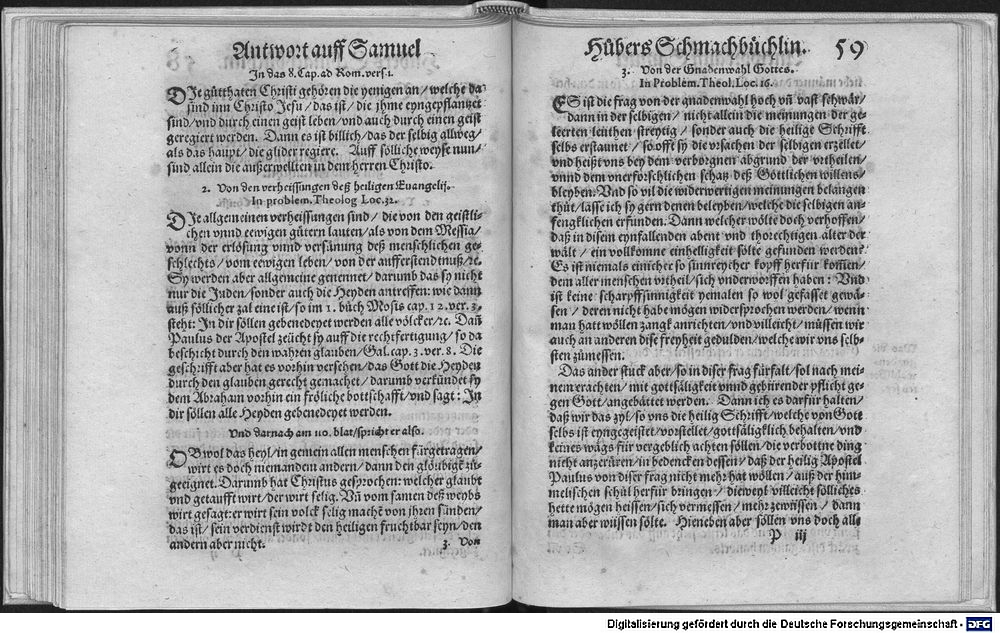 Antwort auff Samuel
In das 8. Cap. ad Rom. vers. 1.
DIe gůtthaten Christi gehören die yenigen an / welche da
sind inn Christo Jesu / das ist / die jhme eyngepflantzet
sind / vnd durch einen geist leben / vnd auch durch einen geist
geregiert werden. Dann es ist billich / das der selbig allweg /
als das haupt / die glider regiere. Auff sölliche weyse nun /
sind allein die außerwellten in dem herren Christo.
2. Von den verheissungen deß heiligen Euangelij.
In problem. Theolog Loc. 32.
DIe allgemeinen verheissungen sind / die von den geistli-
chen vnnd eewigen gůtern lauten / als von dem Messia /
vonn der erlösung vnnd versůnung deß menschlichen ge-
schlechts / vom eewigen leben / von der aufferstendtnuß / ꝛc.
Sy werden aber allgemeine genennet / darumb das sy nicht
nur die Juden / sonder auch die Heyden antreffen: wie dann
auß söllicher zal eine ist / so im 1. bůch Mosis cap. 12. ver. 3.
steht: In dir söllen gebenedeyet werden alle völcker / ꝛc. Dañ
Paulus der Apostel zeücht sy auff die rechtfertigung / so da
beschicht durch den wahren glauben / Gal. cap. 3. ver. 8. Die
geschrifft aber hat es vorhin versehen / das Gott die Heyden
durch den glauben gerecht gemachet / darumb verkündet sy
dem Abraham vorhin ein fröliche bottschafft / vnd sagt: In
dir söllen alle Heyden gebenedeyet werden.
Vnd darnach am 110. blat / spricht er also.
OB wol das heyl / in gemein allen menschen fürgetragen /
wirt es doch niemandem andern / dann den glöubigē zů-
geeignet. Darumb hat Christus gesprochen: welcher glaubt
vnd getaufft wirt / der wirt selig. Vñ vom samen deß weybs
wirt gesagt: er wirt sein volck selig machē von jhren sünden /
das ist / sein verdienst wirdt den heiligen fruchtbar seyn / den
andern aber nicht.
3. Von
Hůbers Schmachbüchlin. 59
3. Von der Gnadenwahl Gottes.
In Problem. Theol. Loc. 16.
ES ist die frag von der gnadenwahl hoch vñ vast schwär /
dann in der selbigen / nicht allein die meinungen der ge-
leerten leüthen streytig / sonder auch die heilige Schrifft
selbs erstaunet / so offt sy die vrsachen der selbigen erzellet /
vnd heißt vns bey dem verborgnen abgrund der vrtheilen /
vnnd dem vnerforschlichen schatz deß Göttlichen willens /
bleyben. Vnd so vil die widerwertigen meinungen belangen
thůt / lasse ich sy gern denen beleyben / welche die selbigen an-
fengklichen erfunden. Dann welcher wölte doch verhoffen /
daß in disem eynfallenden abent vnd thorechtigen alter der
wält / ein vollkomne einhelligkeit sölte gefunden werden?
Es ist niemals einicher so sinnreycher kopff herfür kom̃en /
dem aller menschen vrtheil / sich vnderworffen haben: Vnd
ist keine scharpffsinnigkeit yemalen so wol gefasset gewä-
sen / deren nicht habe mögen widersprochen werden / wenn
man hatt wöllen zangk anrichten / vnd villeicht / müssen wir
auch an anderen dise freyheit gedulden / welche wir vns selb-
sten zůmessen.
Das ander stück aber / so in diser frag fürfalt / sol nach mei-
nem erachten / mit gottsäligkeit vnnd gebürender pflicht ge-
gen Gott / angebättet werden. Dann ich es darfür halten /
daß wir das zyl / so vns die heilig Schrifft / welche von Gott
selbs ist eyngegeistet / vorstellet / gottsäligklich behalten / vnd
keines wägs für vergeblich achten söllen / die verbottne ding
nicht anzerůren / in bedencken dessen / daß der heilig Apostel
Paulus von diser frag nicht mehr hat wöllen / auß der him-
melischen schůl herfür bringen / dieweyl villeicht sölliches
hette mögen heissen / sich vermessen / mehr zewüssen / dann
man aber wüssen sölte. Hieneben aber söllen vns doch alle
P iij
Digitalisierung gefördert durch die Deutsche Forschungsgemeinschaft - DFG